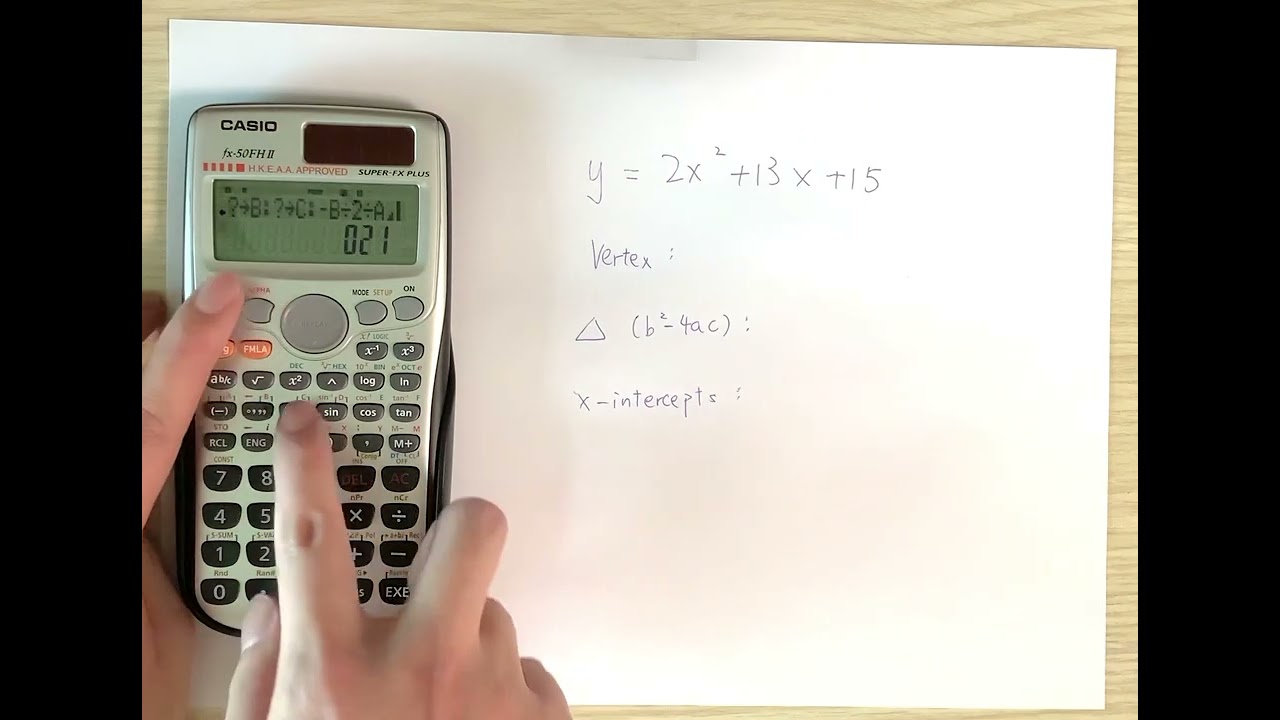 CASIO
fx-50FH II
H.K.E.A.A. APPROVED SUPER-FX PLUS
?→B:?→C:-B÷2÷A◢
021
y = 2x²+13x+15
Vertex :
△ (b²-4ac) :
x-intercepts :
MODE SETUP ON
FMLA
x⁻¹ x³
ab/c √ x² ^ log ln
(−) sin cos tan
RCL ENG , M+
7 8 DEL AC
4 5 × ÷
1 2 + −
0 EXE